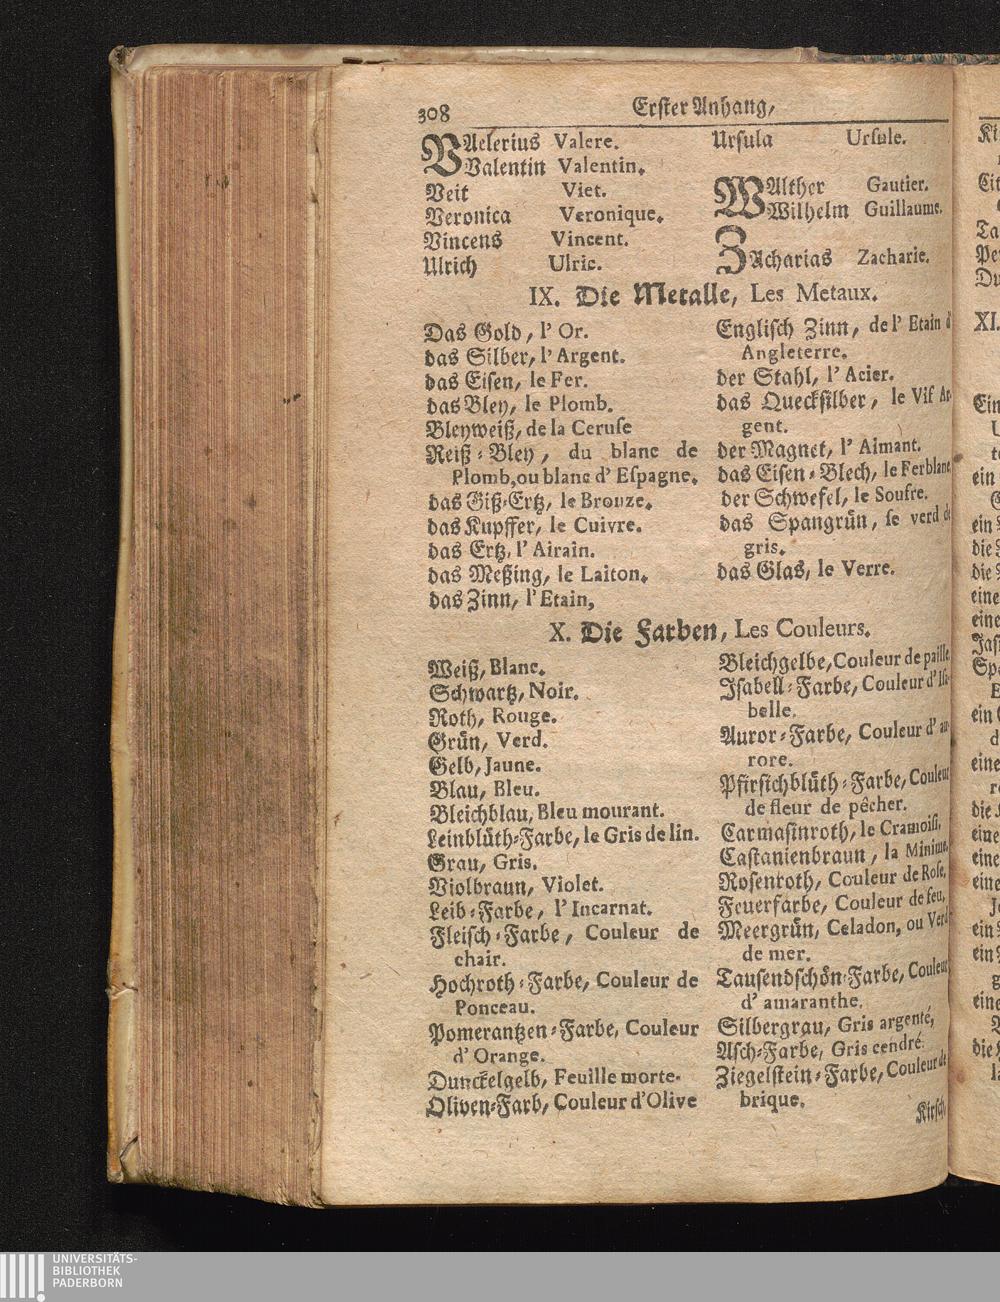 308 Erster Anhang,
VAlerius Valere.
Valentin Valentin.
Veit Viet.
Veronica Veronique.
Vincens Vincent.
Ulrich Ulric.
Ursula Ursule.
WAlther Gautier.
Wilhelm Guillaume.
ZAcharias Zacharie.
IX. Die Metalle, Les Metaux.
Das Gold, l' Or.
das Silber, l' Argent.
das Eisen, le Fer.
das Bley, le Plomb.
Bleyweiß, de la Ceruse
Reiß-Bley, du blanc de
Plomb, ou blanc d' Espagne.
das Giß-Ertz, le Bronze.
das Kupffer, le Cuivre.
das Ertz, l' Airain.
das Meßing, le Laiton.
das Zinn, l' Etain,
Englisch Zinn, de l' Etain d'
Angleterre.
der Stahl, l' Acier.
das Quecksilber, le Vif Ar-
gent.
der Magnet, l' Aimant.
das Eisen-Blech, le Ferblanc
der Schwefel, le Soufre.
das Spangrün, le verd de
gris.
das Glas, le Verre.
X. Die Farben, Les Couleurs.
Weiß, Blanc.
Schwartz, Noir.
Roth, Rouge.
Grün, Verd.
Gelb, Jaune.
Blau, Bleu.
Bleichblau, Bleu mourant.
Leinblüth-Farbe, le Gris de lin.
Grau, Gris.
Violbraun, Violet.
Leib-Farbe, l' Incarnat.
Fleisch-Farbe, Couleur de
chair.
Hochroth-Farbe, Couleur de
Ponceau.
Pomerantzen-Farbe, Couleur
d' Orange.
Dunckelgelb, Feuille morte.
Oliven-Farb, Couleur d'Olive
Bleichgelbe, Couleur de paille
Isabell-Farbe, Couleur d' Isa-
belle.
Auror-Farbe, Couleur d' au-
rore.
Pfirsichblüth-Farbe, Couleur
de fleur de pêcher.
Carmasinroth, le Cramoisi.
Castanienbraun, la Minime.
Rosenroth, Couleur de Rose.
Feuerfarbe, Couleur de feu.
Meergrün, Celadon, ou Verd
de mer.
Tausendschön-Farbe, Couleur
d' amaranthe.
Silbergrau, Gris argenté,
Asch-Farbe, Gris cendré.
Ziegelstein-Farbe, Couleur de
brique.
Kirsch,
XI.
UNIVERSITÄTS-
BIBLIOTHEK
PADERBORN